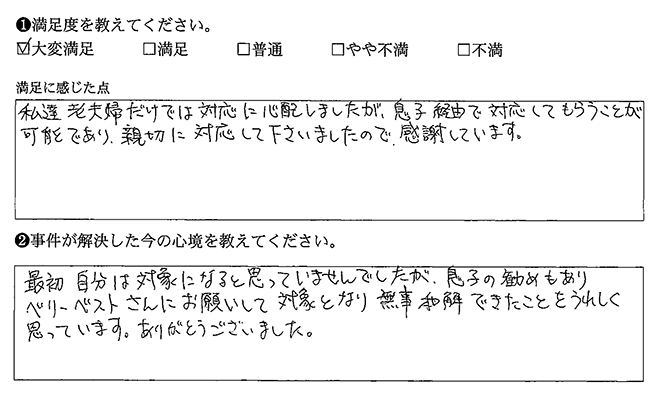 ❶満足度を教えてください。
☑大変満足 □満足 □普通 □やや不満 □不満
満足に感じた点
私達 老夫婦だけでは 対応に心配しましたが、息子 経由で 対応してもらうことが
可能であり、親切に 対応して下さいましたので、感謝しています。
❷事件が解決した今の心境を教えてください。
最初 自分は 対象になると思っていませんでしたが、息子の勧めもあり
ベリーベストさんにお願いして 対象となり 無事和解できたことをうれしく
思っています。ありがとうございました。